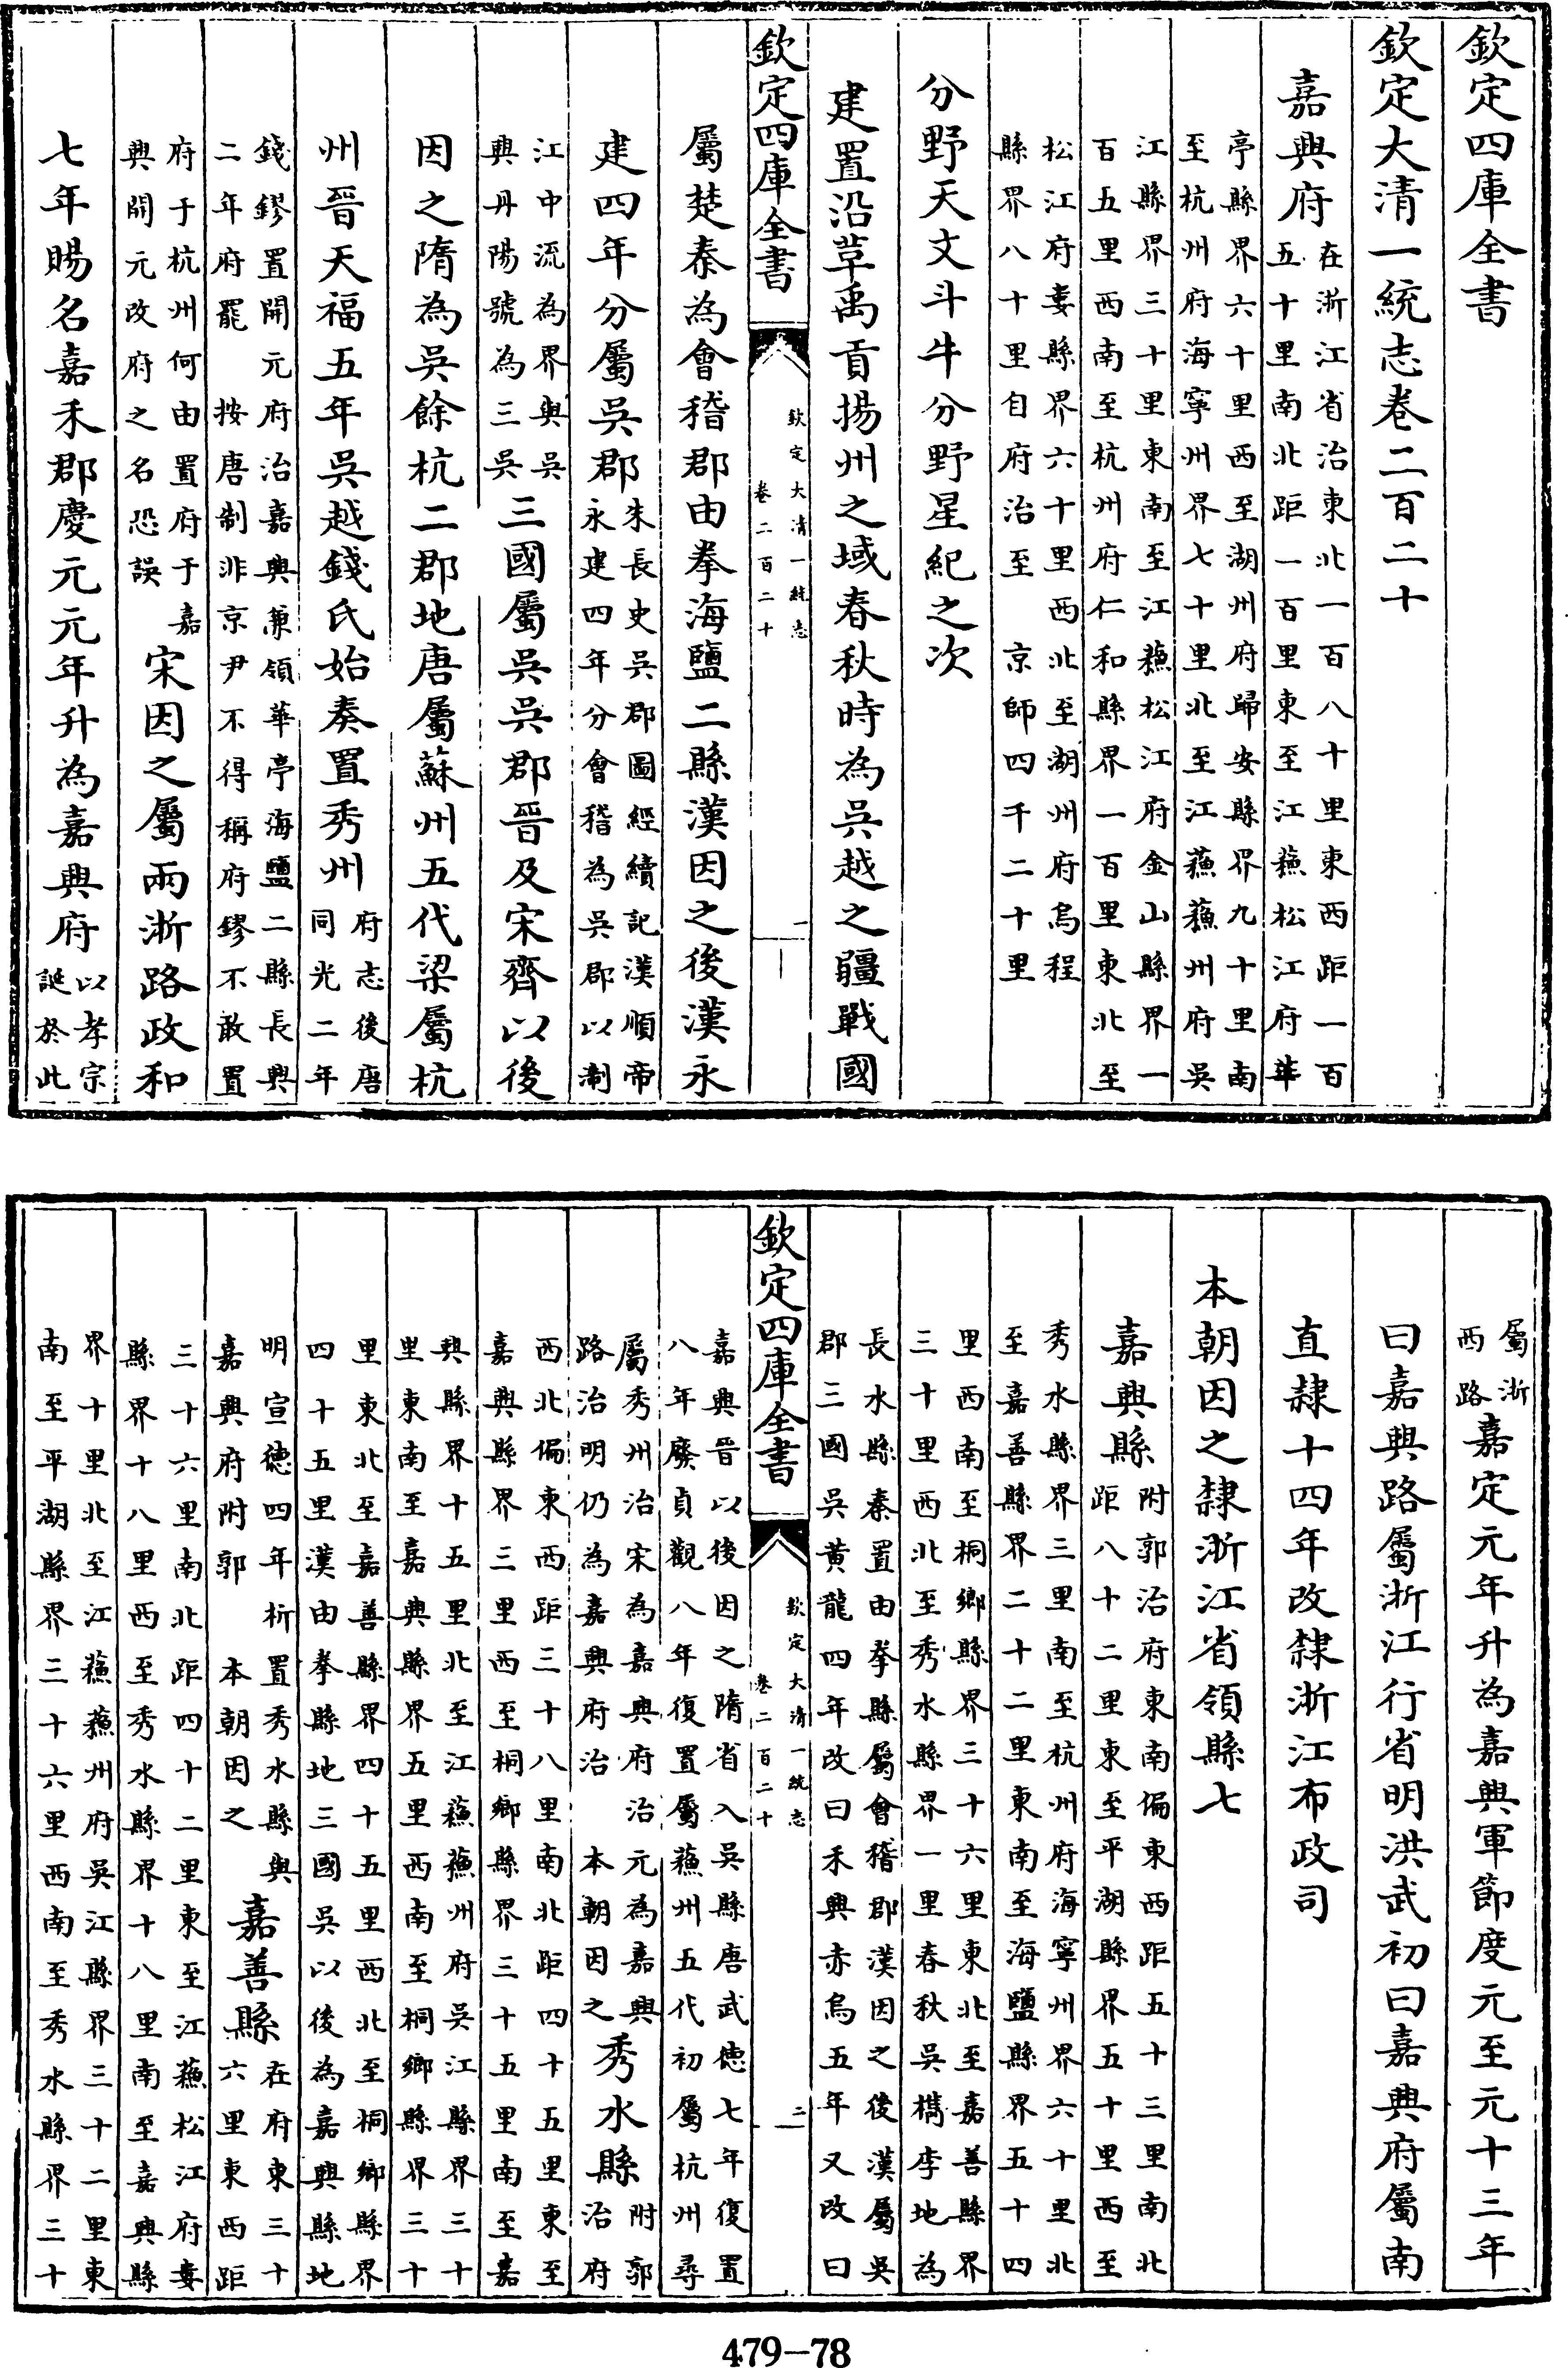 欽定四庫全書
欽定大清一統志卷二百二十
嘉興府在浙江省治東北一百八十里東西距一百五十里南北距一百里東至江蘇松江府華
亭縣界六十里西至湖州府歸安縣界九十里南至杭州府海寧州界七十里北至江蘇蘇州府吳
江縣界三十里東南至江蘇松江府金山縣界一百五里西南至杭州府仁和縣界一百里東北至
松江府婁縣界六十里西北至湖州府烏程縣界八十里自府治至 京師四千二十里
分野天文斗牛分野星紀之次
建置沿革禹貢揚州之域春秋時為吳越之疆戰國
欽定四庫全書 欽定大清一統志 卷二百二十 一
屬楚秦為會稽郡由拳海鹽二縣漢因之後漢永
建四年分屬吳郡朱長史吳郡圖經續記漢順帝永建四年分會稽為吳郡以淛
江中流為界與吳興丹陽號為三吳三國屬吳吳郡晉及宋齊以後
因之隋為吳餘杭二郡地唐屬蘇州五代梁屬杭
州晉天福五年吳越錢氏始奏置秀州府志後唐同光二年
錢鏐置開元府治嘉興兼領華亭海鹽二縣長興二年府罷 按唐制非京尹不得稱府鏐不敢置
府于杭州何由置府于嘉興開元改府之名恐誤宋因之屬兩浙路政和
七年賜名嘉禾郡慶元元年升為嘉興府以孝宗誕於此
屬浙西路嘉定元年升為嘉興軍節度元至元十三年
曰嘉興路屬浙江行省明洪武初曰嘉興府屬南
直隸十四年改隸浙江布政司
本朝因之隸浙江省領縣七
嘉興縣附郭治府東南偏東西距五十三里南北距八十二里東至平湖縣界五十里西至
秀水縣界三里南至杭州府海寧州界六十里北至嘉善縣界二十二里東南至海鹽縣界五十四
里西南至桐鄉縣界三十六里東北至嘉善縣界三十里西北至秀水縣界一里春秋吳檇李地為
長水縣秦置由拳縣屬會稽郡漢因之後漢屬吳郡三國吳黃龍四年改曰禾興赤烏五年又改曰
欽定四庫全書 欽定大清一統志 卷二百二十 二
嘉興晉以後因之隋省入吳縣唐武德七年復置八年廢貞觀八年復置屬蘇州五代初屬杭州尋
屬秀州治宋為嘉興府治元為嘉興路治明仍為嘉興府治 本朝因之秀水縣附郭治府
西北偏東西距三十八里南北距四十五里東至嘉興縣界三里西至桐鄉縣界三十五里南至嘉
興縣界十五里北至江蘇蘇州府吳江縣界三十里東南至嘉興縣界五里西南至桐鄉縣界三十
里東北至嘉善縣界四十五里西北至桐鄉縣界四十五里漢由拳縣地三國吳以後為嘉興縣地
明宣德四年析置秀水縣與嘉興府附郭 本朝因之嘉善縣在府東三十六里東西距
三十六里南北距四十二里東至江蘇松江府婁縣界十八里西至秀水縣界十八里南至嘉興縣
界十里北至江蘇蘇州府吳江縣界三十二里東南至平湖縣界三十六里西南至秀水縣界三十
479-78